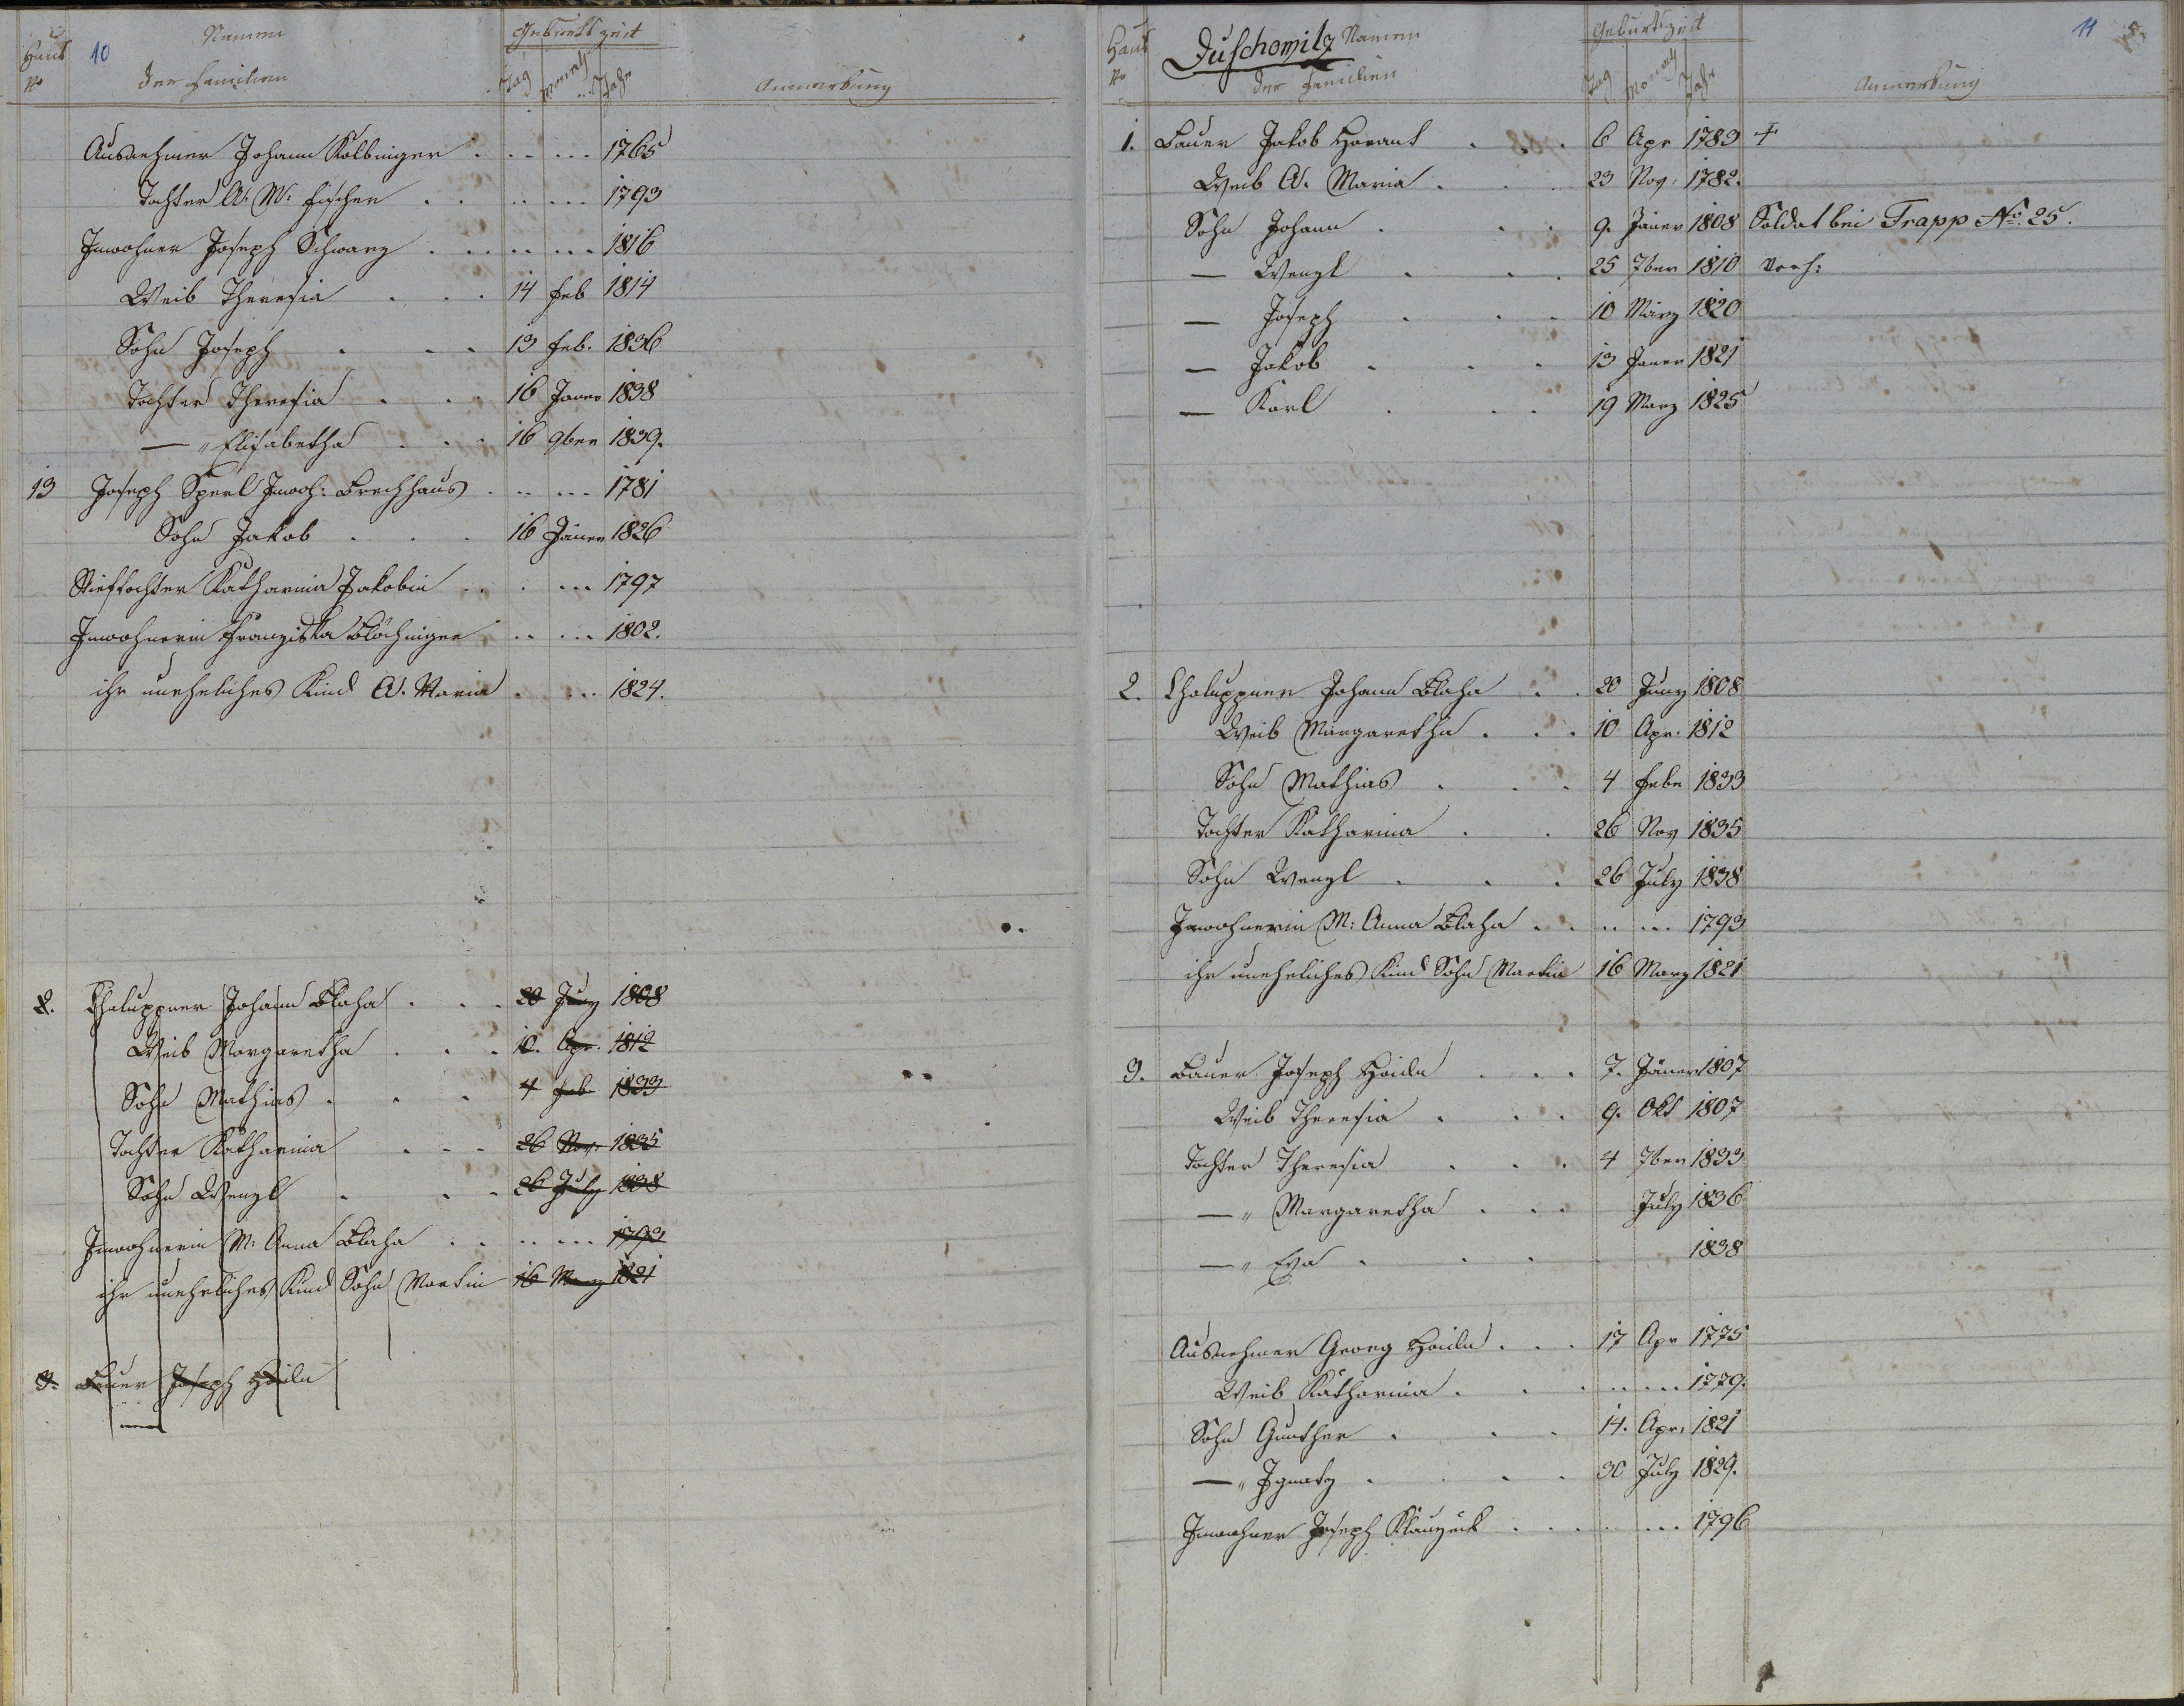 Haus No
10
Namen
der Familien
Geburtszeit
Tag Monath Jahr
Anmerkung
Ausnehmer Johann Kolbinger . . . . . . 1765
Tochter A. M: Fischer . . . . . . . 1793
Inwohner Joseph Schwarz . . . . . . . 1816
Weib Theresia . . . 14 Feb 1814
Sohn Joseph . . . 13 Feb. 1836
Tochter Theresia . . . 16 Janer 1838
— " Elisabetha . . . 16 9ber 1839.
13 Joseph Sperl Inwoh: Brechhaus . . . . . . 1781
Sohn Jakob . . . 16 Jäner 1826
Stieftochter Katharina Jakobin . . . . . . 1797
Inwohnerin Franziska Blöchinger . . . . . 1802.
ihr uneheliches Kind A. Maria . . . . 1824.
2. Chaluppner Johann Blaha . . . 20 Juny 1808
Weib Margaretha . . . 10. Apr. 1812
Sohn Mathias . . . 4 Feb 1833
Tochter Katharina . . . 26 Nov. 1835
Sohn Wenzl . . . 26 July 1838
Inwohnerin M: Anna Blaha . . . . . . . 1793
ihr uneheliches Kind Sohn Martin 16 Marz 1821
3. Bauer Joseph Haidn
Haus No
Duschowitz Namen
der Familien
Geburtszeit
Tag Monath Jahr
Anmerkung
11
5.
1. Bauer Jakob Havant . . . 6 Apr 1783 +
Weib A. Maria . . . 23 Nov: 1782.
Sohn Johann . . . 9. Jäner 1808 Soldat bei Trapp No. 25.
— Wenzl . . . 25 7ber 1810 verh:
— Joseph . . . 10 März 1820
— Jakob . . . 13 Janer 1821
— Karl . . . 19 Marz 1825
2. Chaluppner Johann Blaha . . 20 Juny 1808
Weib Margaretha . . . 10 Apr. 1812
Sohn Mathias . . . 4 Febr 1833
Tochter Katharina . . 26 Nov 1835
Sohn Wenzl . . . 26 July 1838
Inwohnerin M: Anna Blaha . . . . . . . 1793
ihr uneheliches Kind Sohn Martin 16 Marz 1821
3. Bauer Joseph Haidn . . . 7. Jäner 1807
Weib Theresia . . . 9. Okt 1807
Tochter Theresia . . . 4 7ber 1833
— " Margaretha . . . July 1836
— " Eva . . . 1838
Ausnehmer Georg Haidn . . . 17 Apr 1775
Weib Katharina . . . . . . . . 1779.
Sohn Gunther . . . 14. Apr. 1821
— " Ignatz . . . . 30 July 1829.
Inwohner Joseph . . . . . . . 1796